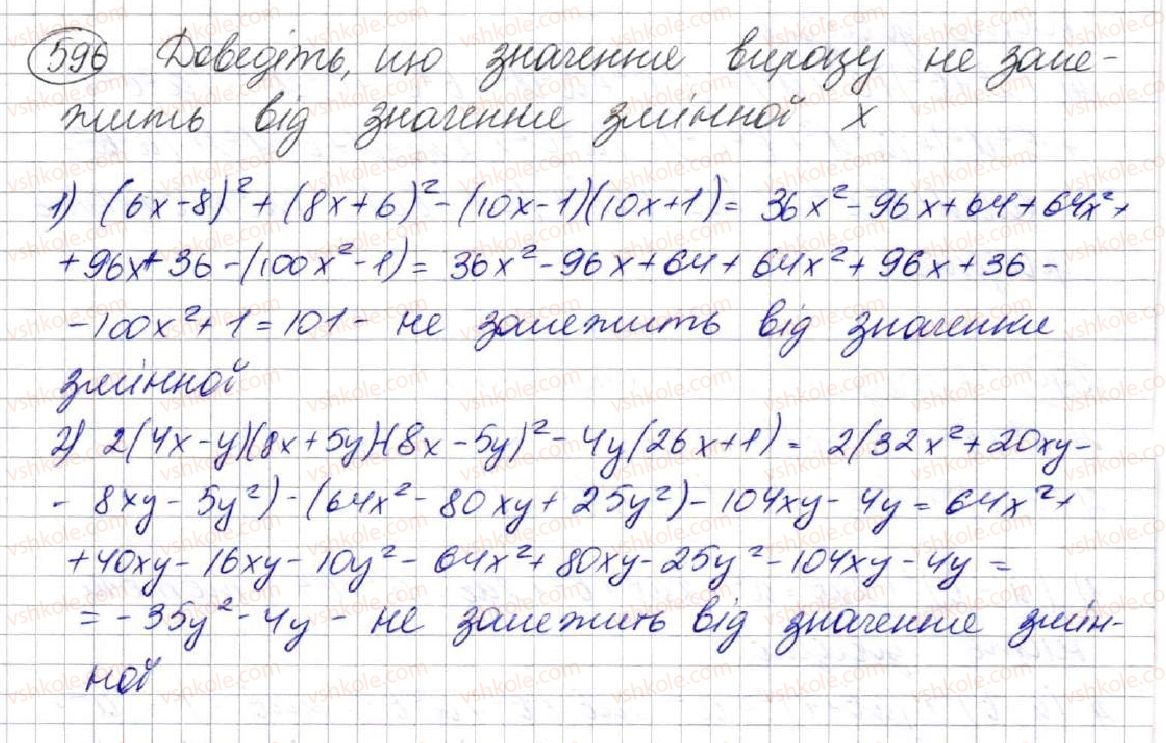 596 Доведіть, що значення виразу не зале-
жить від значення змінної x
1) (6x-8)²+(8x+6)²-(10x-1)(10x+1)= 36x²-96x+64+64x²+
+96x+36-(100x²-1)= 36x²-96x+64+64x²+96x+36-
-100x²+1=101- не залежить від значення
змінної
2) 2(4x-y)(8x+5y)-(8x-5y)²-4y(26x+1)= 2(32x²+20xy-
-8xy-5y²)-(64x²-80xy+25y²)-104xy-4y=64x²+
+40xy-16xy-10y²-64x²+80xy-25y²-104xy-4y=
=-35y²-4y- не залежить від значення змін-
ної